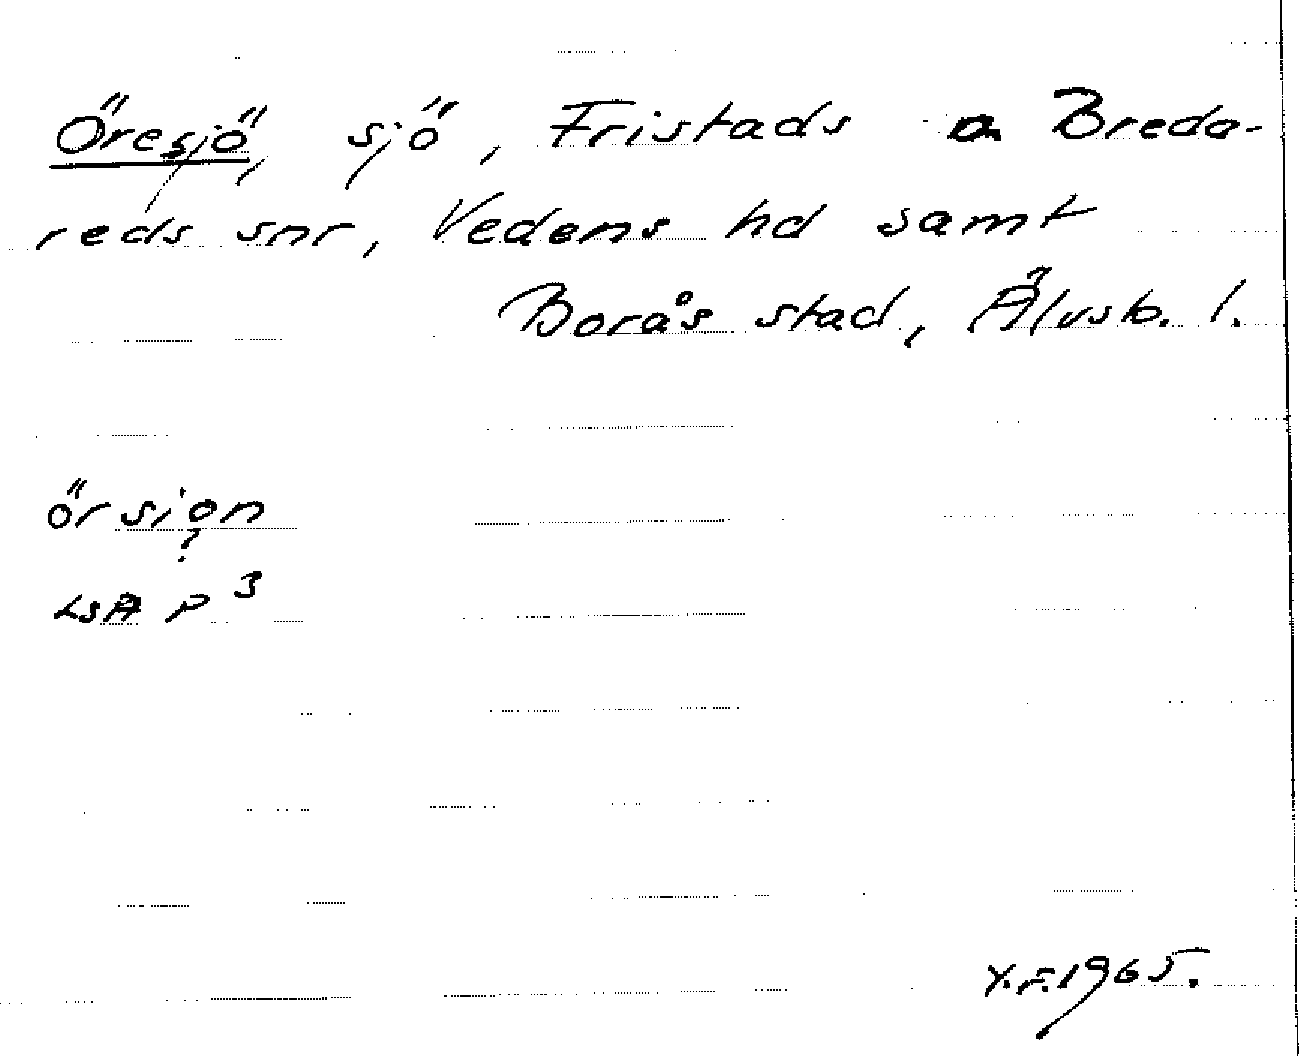 Öresjö, sjö, Fristads o Breda-
reds snr, Vedens hd samt
Borås stad, Älvsb. l.
örsjon
?
LSA P 3
Y.F. 1965.